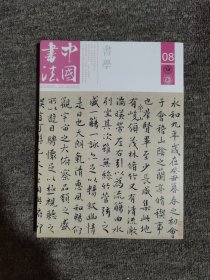 中國
書法
書學
08
永和九年歲在癸丑暮春之初會
于會稽山陰之蘭亭脩稧事
也羣賢畢至少長咸集此地
有崇山峻領茂林脩竹又有清流激
湍暎帶左右引以為流觴曲水
列坐其次雖無絲竹管弦之
盛一觴一詠亦足以暢敘幽情
是日也天朗氣清惠風和暢仰
觀宇宙之大俯察品類之盛
所以遊目騁懷足以極視聽之